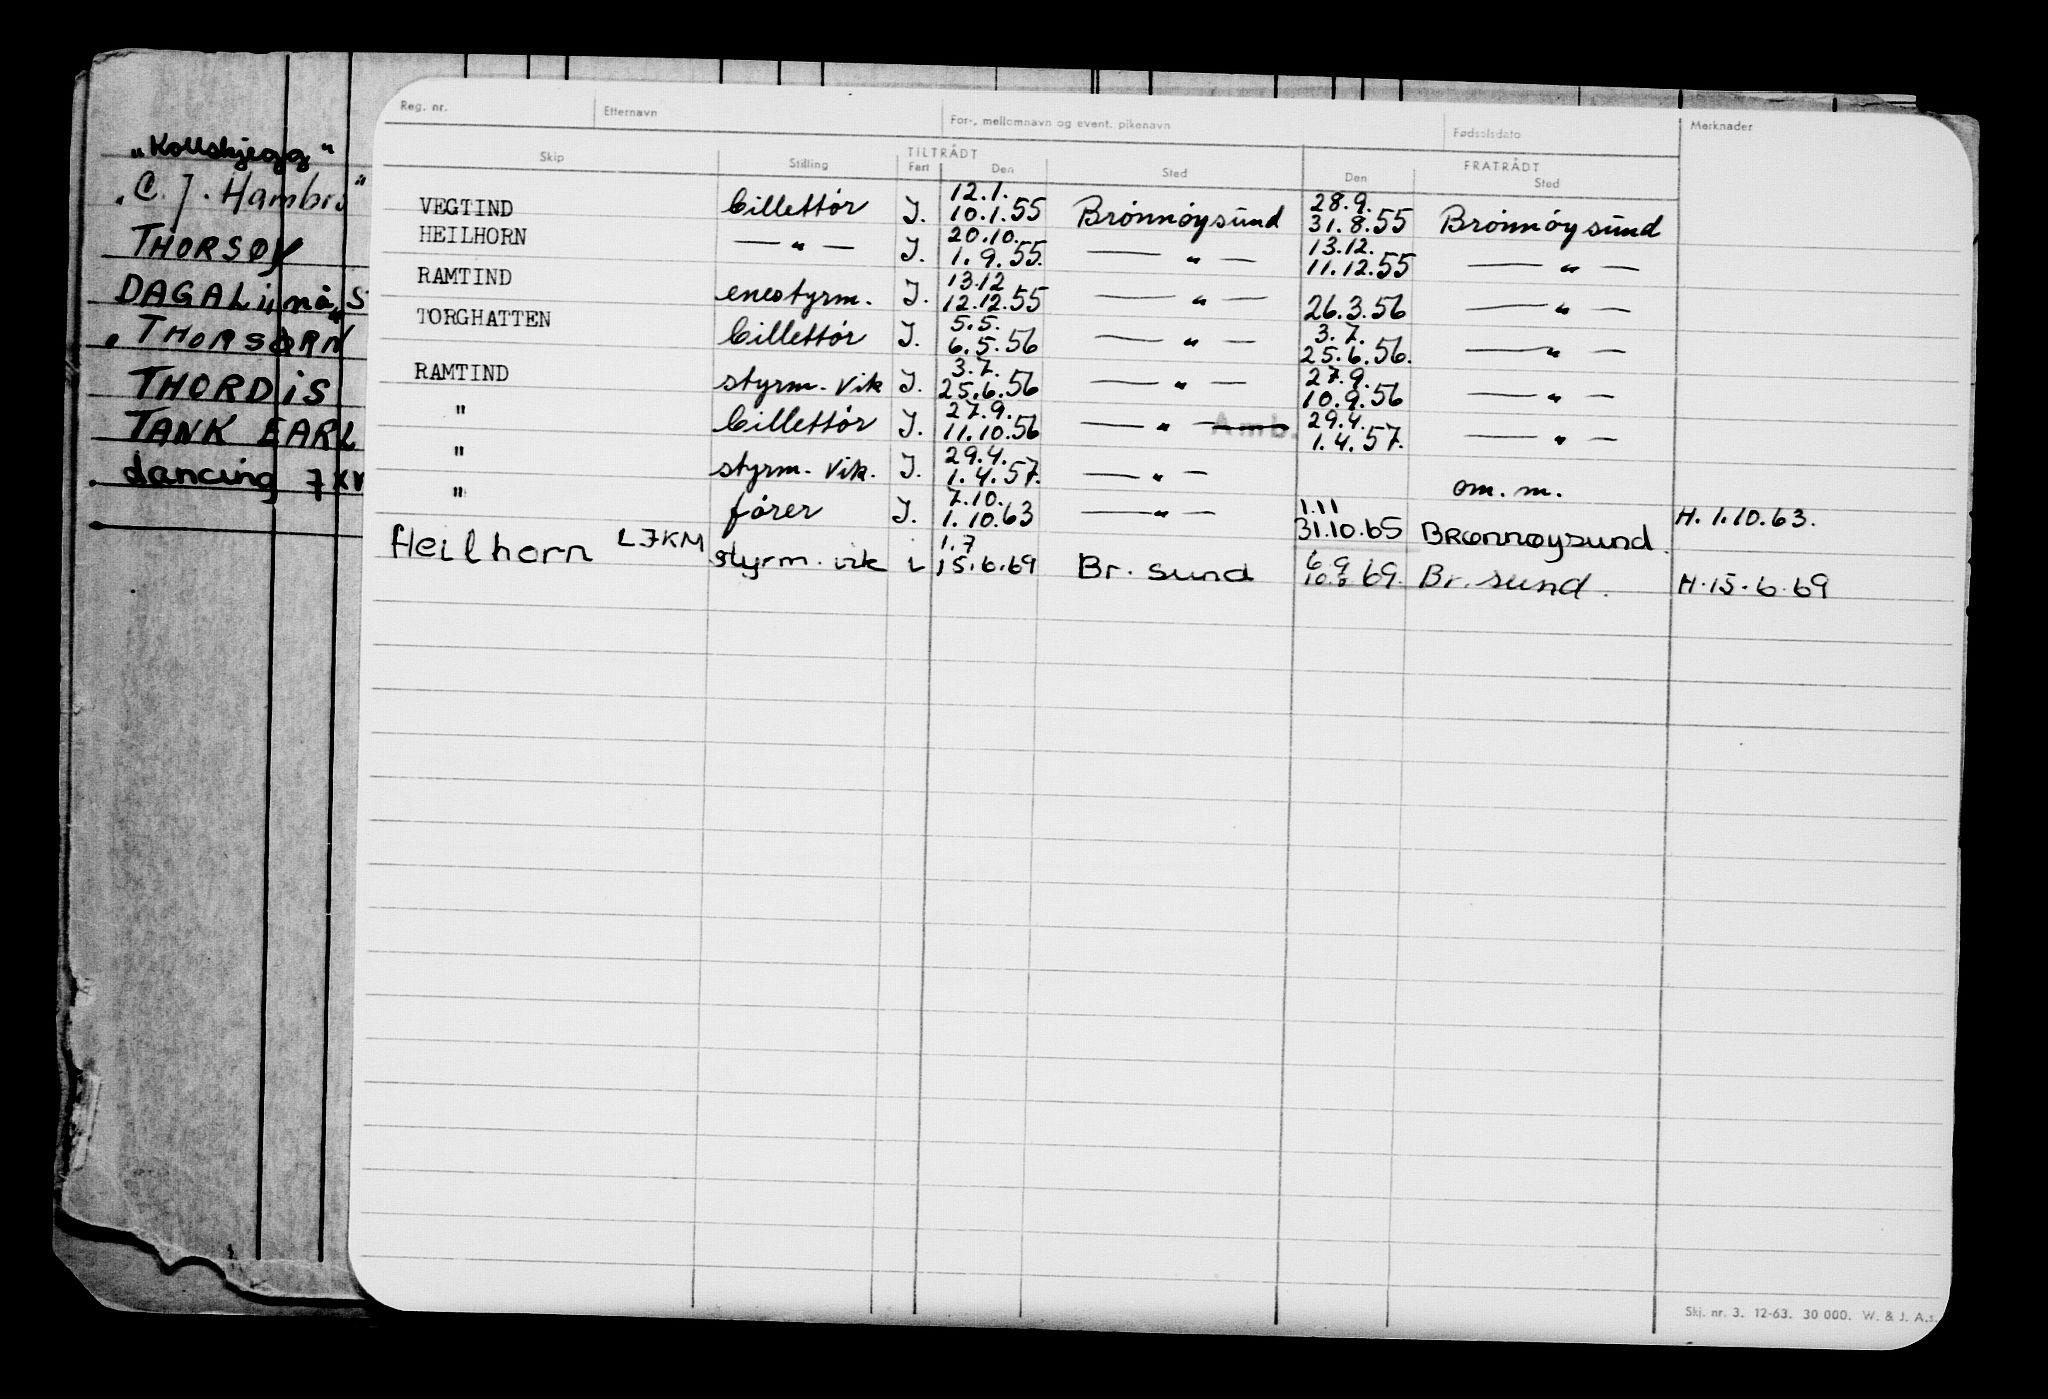 „Kollbjegg“
„C. J. Hambro“
THORSØY
DAGALi
„THORSØRN
THORDIS
TANK EARL
dancing
Reg. nr. Etternavn For-, mellomnavn og event. pikenavn Fødselsdato Merknader
Skip Stilling TILTRÅDT FRATRÅDT
Fart Den Sted Den Sted
12.1. 28.9.
VEGTIND billettør J. 10.1.55 Brønnøysund 31.8.55 Brønnøysund
20.10. 13.12.
HEILHORN — " — J. 1.9.55. — " — 11.12.55 — " —
13.12
RAMTIND enestyrm. J. 12.12.55 — " — 26.3.56 — " —
5.5. 3.7.
TORGHATTEN billettør J. 6.5.56 — " — 25.6.56. — " —
3.7. 27.9.
RAMTIND styrm. vik J. 25.6.56 — " — 10.9.56 — " —
27.9. 29.4.
" billettør J. 11.10.56 — " — Amb. 1.4.57. — " —
29.4.
" styrm. vik. J. 1.4.57. — " — om. m.
7.10. 1.11
" fører J. 1.10.63 — " — 31.10.65 Brønnøysund. H. 1.10.63.
1.7 6.9
Heilhorn LJKM styrm. vik i 15.6.69 Br. sund 10.8 69. Br. sund. H. 15.6.69
Skj. nr. 3. 12-63. 30 000. W. & J. A.s.